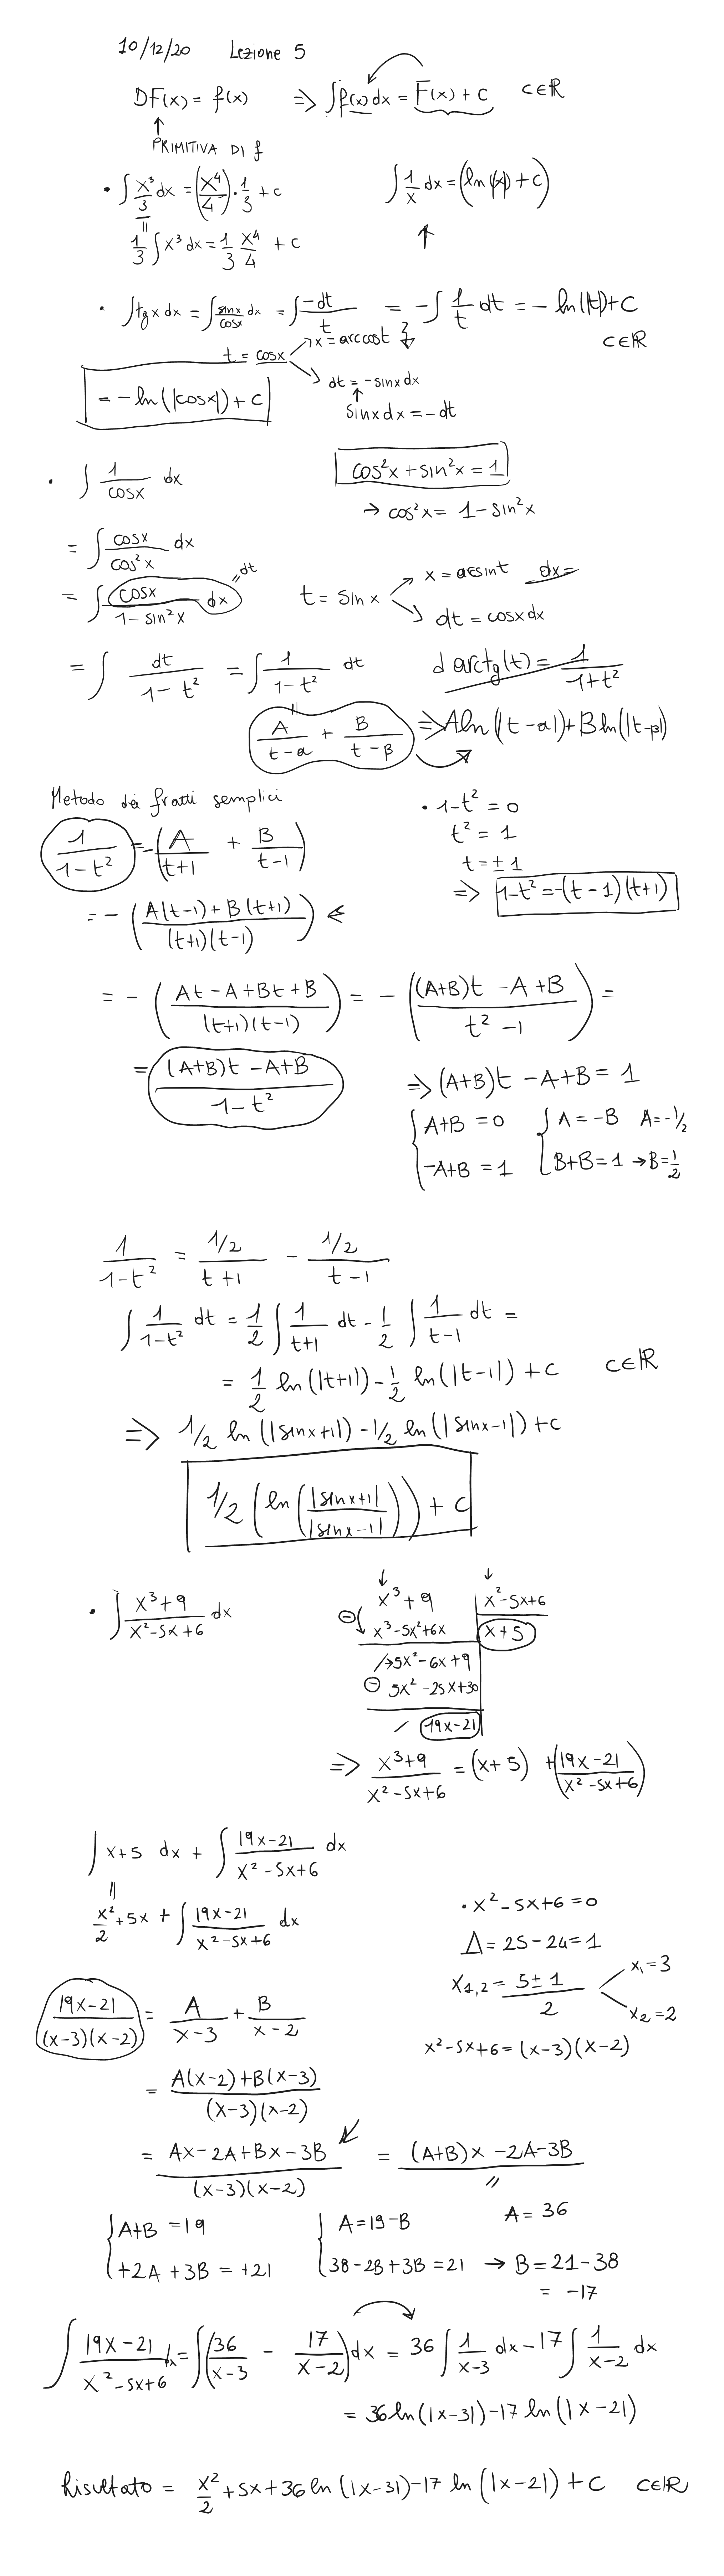 10/12/20 Lezione 5
DF(x) = f(x) ⇒ ∫f(x)dx = F(x) + c c∈ℝ
↑
PRIMITIVA DI f
• ∫ x³/3 dx = (x⁴/4)·1/3 + c ∫ 1/x dx = (ln|x| + c)
1/3 ∫ x³ dx = 1/3 x⁴/4 + c ↑
• ∫tgx dx = ∫ sinx/cosx dx = ∫ -dt/t = -∫ 1/t dt = - ln(|t|)+c
c∈ℝ
t = cosx → x = arccost
→ dt = -sinx dx
↑
sinx dx = -dt
= -ln(|cosx|) + c
• ∫ 1/cosx dx cos²x + sin²x = 1
→ cos²x = 1 - sin²x
= ∫ cosx/cos²x dx
= ∫ cosx/(1 - sin²x) dx = dt t = sin x → x = arsint dx=
→ dt = cosx dx
= ∫ dt/(1 - t²) = ∫ 1/(1 - t²) dt d arctg(t) = 1/(1+t²)
A/(t-α) + B/(t-β) ⇒ Aln(|t-α|)+Bln(|t-β|)
Metodo dei fratti semplici • 1-t² = 0
1/(1-t²) = -(A/(t+1) + B/(t-1)) t² = 1
t = ± 1
⇒ 1-t² = -(t-1)(t+1)
= - (A(t-1)+B(t+1)/(t+1)(t-1)) ⇐
= - (At-A+Bt+B/(t+1)(t-1)) = - ((A+B)t -A+B/t²-1) =
= (A+B)t -A+B/1-t² ⇒ (A+B)t -A+B = 1
{A+B = 0 {A = -B A=-1/2
{-A+B = 1 {B+B=1 → B=1/2
1/(1-t²) = 1/2/(t+1) - 1/2/(t-1)
∫ 1/(1-t²) dt = 1/2 ∫ 1/(t+1) dt - 1/2 ∫ 1/(t-1) dt =
= 1/2 ln(|t+1|) - 1/2 ln(|t-1|) + c c∈ℝ
⇒ 1/2 ln(|sinx+1|) - 1/2 ln(|sinx-1|) + c
1/2 (ln(|sinx+1|/|sinx-1|)) + c
• ∫ x³+9/x²-5x+6 dx x³+9 x²-5x+6
⊖ x³-5x²+6x x+5
/ 5x²-6x+9
⊖ 5x²-25x+30
/ 19x-21
⇒ x³+9/x²-5x+6 = (x+5) + (19x-21/x²-5x+6)
∫ x+5 dx + ∫ 19x-21/x²-5x+6 dx
x²/2 + 5x + ∫ 19x-21/x²-5x+6 dx • x²-5x+6=0
Δ = 25-24=1
x1,2 = 5±1/2 x₁=3
x₂=2
19x-21/(x-3)(x-2) = A/x-3 + B/x-2 x²-5x+6=(x-3)(x-2)
= A(x-2)+B(x-3)/(x-3)(x-2)
= Ax-2A+Bx-3B/(x-3)(x-2) = (A+B)x -2A-3B/〃
{A+B = 19 {A = 19-B A = 36
{+2A+3B = +21 {38-2B+3B=21 → B = 21-38
= -17
∫ 19x-21/x²-5x+6 dx = ∫(36/x-3 - 17/x-2)dx = 36 ∫ 1/x-3 dx - 17 ∫ 1/x-2 dx
= 36ln(|x-3|)-17 ln(|x-2|)
Risultato = x²/2 + 5x + 36 ln(|x-3|)-17 ln(|x-2|) + c c∈ℝ